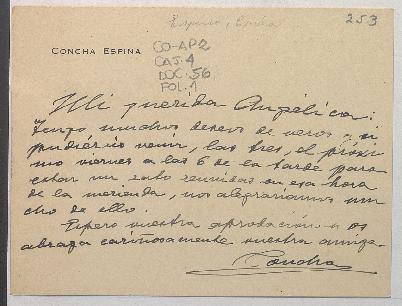 Espina, Concha
253
CONCHA ESPINA
CO-AP2
CAJ. 4
DOC. 56
FOL. 1
Mi querida Angélica:
Tengo muchos deseos de veros y si
pudiérais venir, las tres, el próxi
mo viernes a las 6 de la tarde para
estar un rato reunidas en esa hora
de la merienda, nos alegraríamos mu
cho de ello.
Espero vuestra aprobación y os
abraza cariñosamente vuestra amiga
Concha